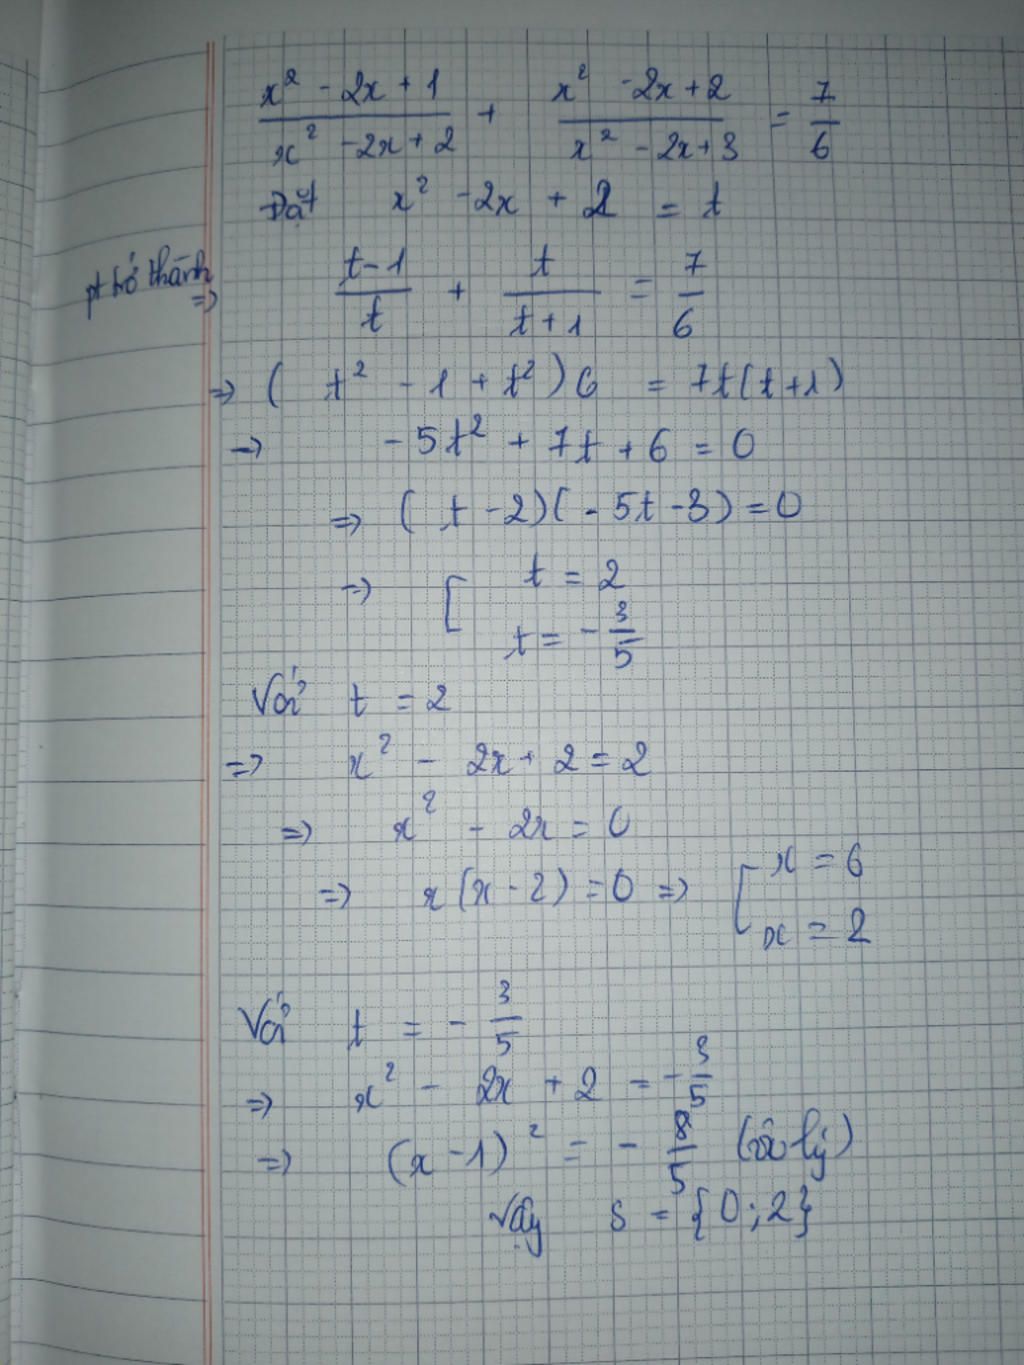 x² - 2x + 1 / x² - 2x + 2 + x² - 2x + 2 / x² - 2x + 3 = 7/6
Đặt x² - 2x + 2 = t
pt trở thành
=> t - 1 / t + t / t + 1 = 7/6
=> ( t² - 1 + t² ) 6 = 7t(t+1)
=> - 5t² + 7t + 6 = 0
=> ( t - 2)( - 5t - 3) = 0
=> [ t = 2
t = - 3/5
Với t = 2
=> x² - 2x + 2 = 2
=> x² - 2x = 0
=> x(x - 2) = 0 => [ x = 6
x = 2
Với t = - 3/5
=> x² - 2x + 2 = - 3/5
=> (x - 1)² = - 8/5 (vô lý)
Vậy S = {0 ; 2}